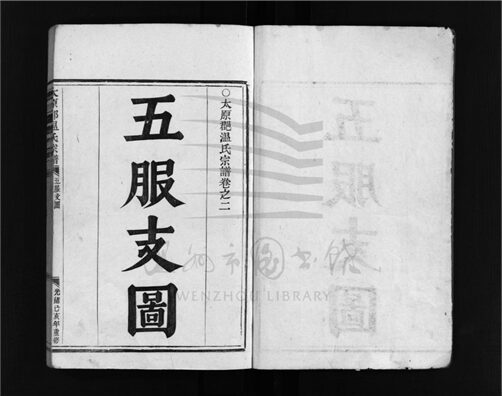 ○太原郡温氏宗譜卷之二
五服支圖
太原郡温氏宗譜 五服支圖 光緒己亥年重修
温州市图书馆
WENZHOU LIBRARY